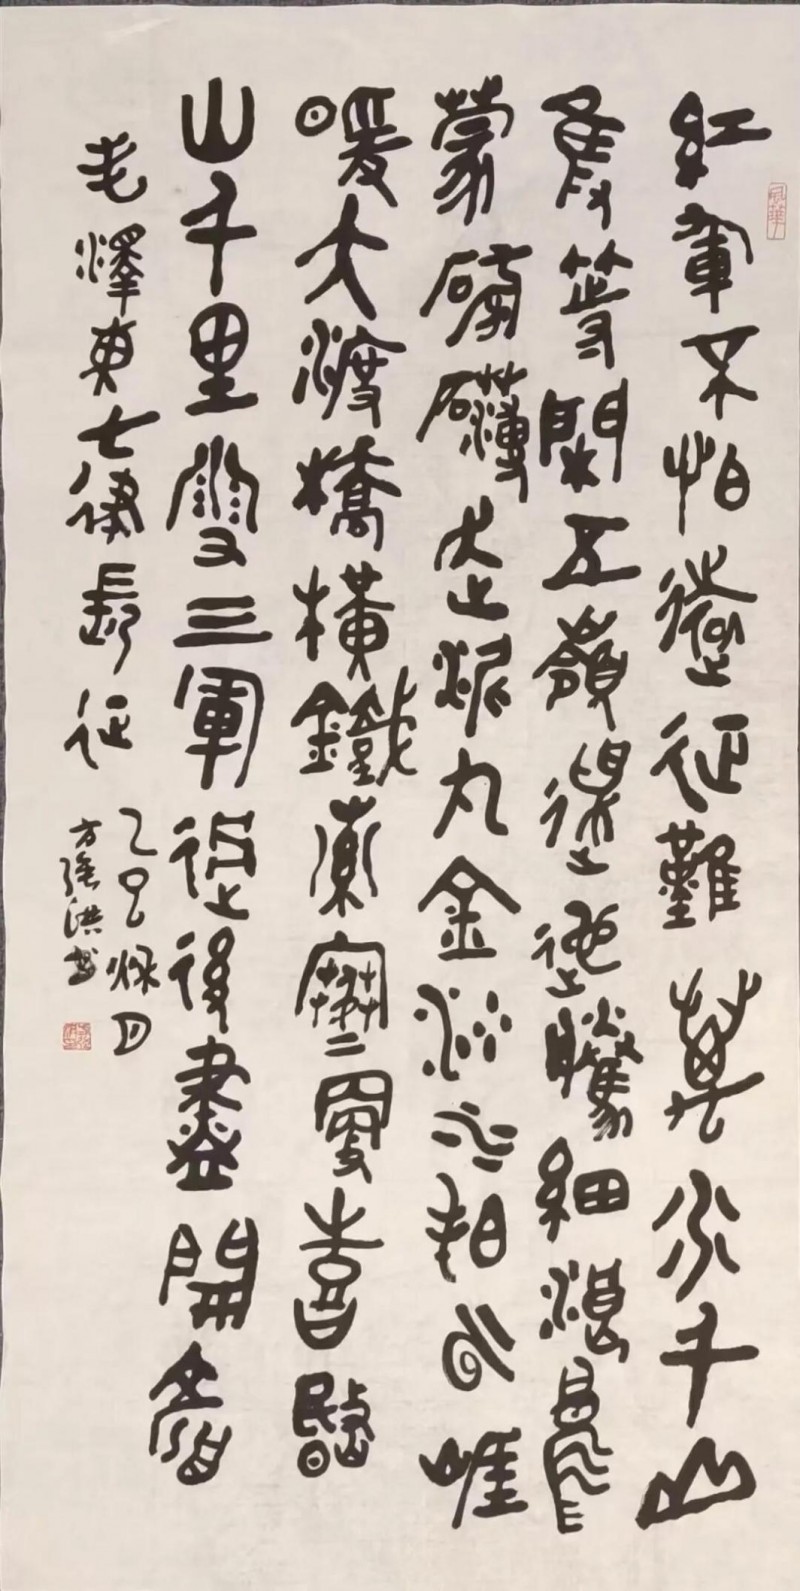 風華
紅軍不怕遠征難萬水千山
隻等閑五嶺逶迤騰細浪烏
蒙磅礴走泥丸金沙水拍雲崖
暖大渡橋橫鐵索寒更喜岷
山千里雪三軍過後盡開顏
毛澤東七律長征 乙巳秋月
方洪書